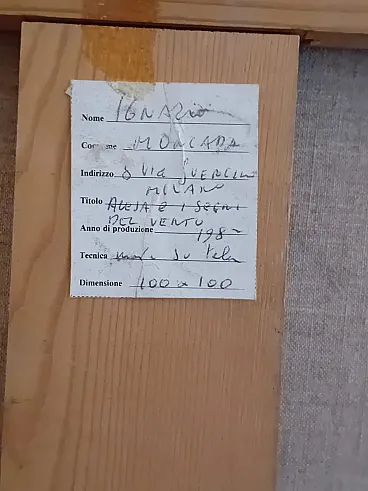 Nome IGNAZIO
Cognome MONCADA
Indirizzo 8 Via
MILANO
Titolo ALESA E I SEGNI
DEL VENTO
Anno di produzione 198
Tecnica su tela
Dimensione 100 x 100